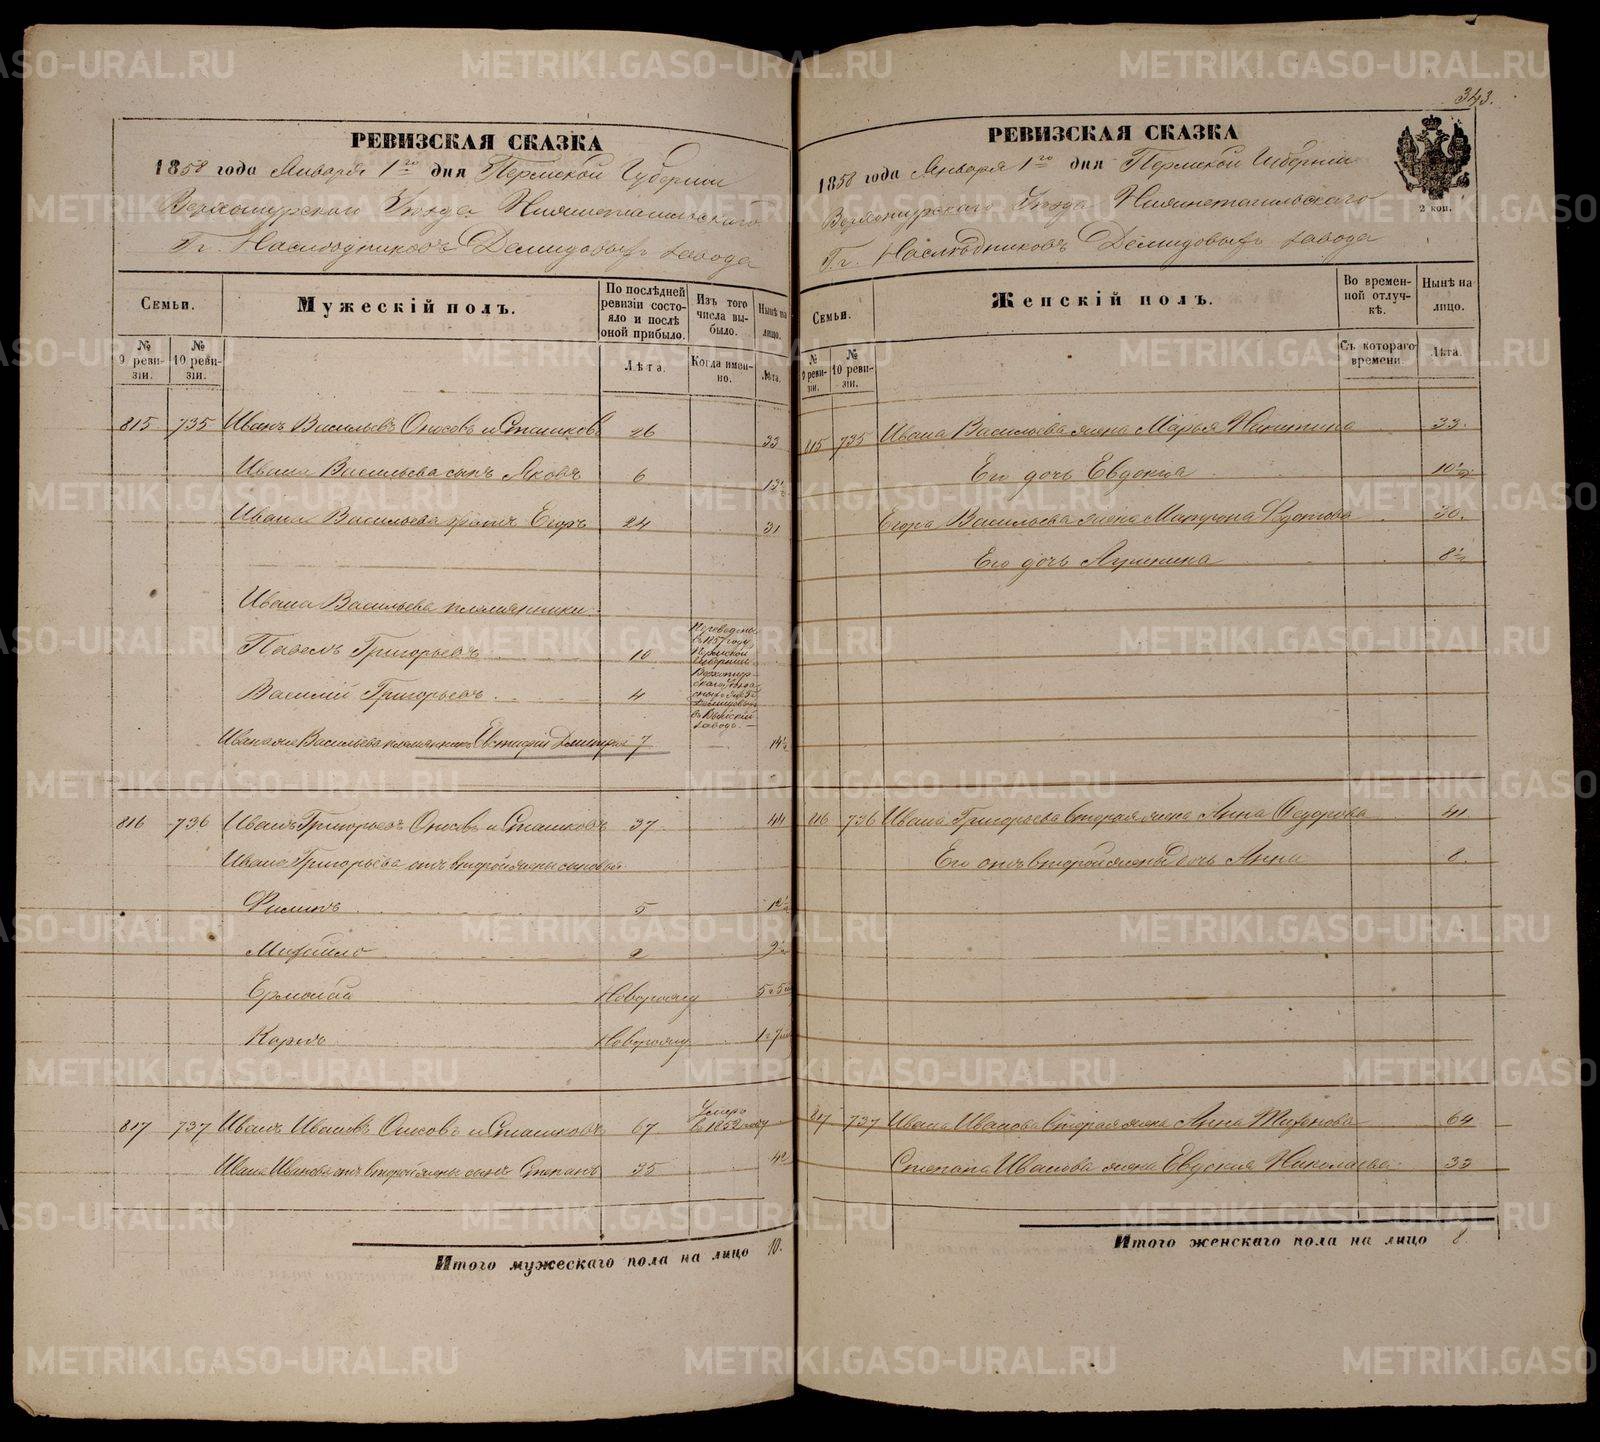 343.
РЕВИЗСКАЯ СКАЗКА
1858 года Января 1го дня Пермской Губернии
Верхотурскаго Уѣзда Нижнетагильскаго
Гг. Наслѣдниковъ Демидовыхъ завода
Семьи.
Мужескій полъ.
По послѣдней ревизіи состояло и послѣ оной прибыло.
Изъ того числа выбыло.
Нынѣ на лицо.
№ 9 ревизіи.
№ 10 ревизіи.
Лѣта.
Когда именно.
Лѣта.
815 735 Иванъ Васильевъ Оносовъ и Сташковъ 26 33
Ивана Васильева сынъ Яковъ 6 13½
Ивана Васильева братъ Егоръ 24 31
Ивана Васильева племянники:
Павелъ Григорьевъ 10
Василій Григорьевъ 4
Переведены
въ 1857 году
Пермской
Губерніи
Верхотур-
скаго
Демидовыхъ
завода
Ивана же Васильева племянникъ Евстафій Дмитрiев 7 14½
816 736 Иванъ Григорьевъ Оносовъ и Сташковъ 37 44
Ивана Григорьева отъ второй жены сыновья
Филипъ 5 12½
Михайло 2 9½
Ермолай Новорожд 5 г 5 м
Карпъ Новорожд 1 г 7 м
817 737 Иванъ Ивановъ Оносовъ и Сташковъ 67 Умеръ въ 1852 году
Ивана Иванова отъ второй жены сынъ Степанъ 35 42
Итого мужескаго пола на лицо 10.
РЕВИЗСКАЯ СКАЗКА
1858 года Января 1го дня Пермской Губерніи
Верхотурскаго Уѣзда Нижнетагильскаго
Гг. Наслѣдниковъ Демидовыхъ завода
2 коп.
Семьи.
Женскій полъ.
Во временной отлучкѣ.
Нынѣ на лицо.
№ 9 ревизіи.
№ 10 ревизіи.
Съ котораго времени.
Лѣта.
815 735 Ивана Васильева жена Марья Никитина 33.
Его дочь Евдокия 10½
Егора Васильева жена Матрона Федотова 30.
Его дочь Агрипина 8½
816 736 Ивана Григорьева вторая жена Анна Федорова 41
Его отъ второй жены дочь Анна 8.
817 737 Ивана Иванова вторая жена Анна 64
Степана Иванова жена Евдокия Николаева 33
Итого женскаго пола на лицо 8.
METRIKI.GASO-URAL.RU